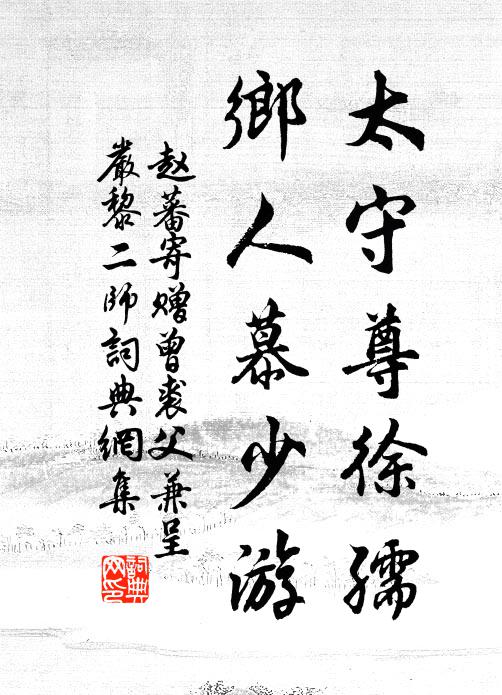 太守尊徐孺
鄉人慕少游
赵蕃寄赠曾裘父兼呈
嚴黎二師詞典網集
詞典
网印